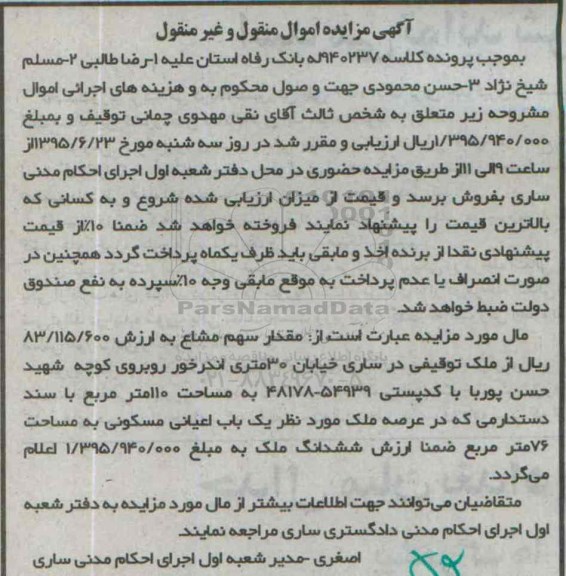 آگهی مزایده اموال منقول و غیر منقول
بموجب پرونده کلاسه ۹۴۰۲۳۷له بانک رفاه استان علیه ۱-رضا طالبی ۲-مسلم
شیخ نژاد ۳-حسن محمودی جهت و صول محکوم به و هزینه های اجرائی اموال
مشروحه زیر متعلق به شخص ثالث آقای نقی مهدوی چمانی توقیف و بمبلغ
۱/۳۹۵/۹۴۰/۰۰۰ریال ارزیابی و مقرر شد در روز سه شنبه مورخ ۱۳۹۵/۶/۲۳از
ساعت ۹الی ۱۱از طریق مزایده حضوری در محل دفتر شعبه اول اجرای احکام مدنی
ساری بفروش برسد و قیمت از میزان ارزیابی شده شروع و به کسانی که
بالاترین قیمت را پیشنهاد نمایند فروخته خواهد شد ضمنا ۱۰٪از قیمت
پیشنهادی نقدا از برنده اخذ و مابقی باید ظرف یکماه پرداخت گردد همچنین در
صورت انصراف یا عدم پرداخت به موقع مابقی وجه ۱۰٪سپرده به نفع صندوق
دولت ضبط خواهد شد.
ParsNamadData
مال مورد مزایده عبارت است از: مقدار سهم مشاع به ارزش ۸۳/۱۱۵/۶۰۰
ریال از ملک توقیفی در ساری خیابان ۳۰متری اندرخور روبروی کوچه شهید
حسن پوربا با کدپستی ۵۴۹۳۹-۴۸۱۷۸ به مساحت ۱۱۰متر مربع با سند
دستدارمی که در عرصه ملک مورد نظر یک باب اعیانی مسکونی به مساحت
۷۶متر مربع ضمنا ارزش ششدانگ ملک به مبلغ ۱/۳۹۵/۹۴۰/۰۰۰ اعلام
می‌گردد.
متقاضیان می‌توانند جهت اطلاعات بیشتر از مال مورد مزایده به دفتر شعبه
اول اجرای احکام مدنی دادگستری ساری مراجعه نمایند.
اصغری -مدیر شعبه اول اجرای احکام مدنی ساری